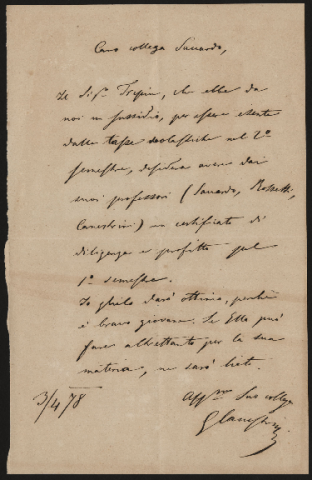 Caro collega Saccardo,
Il Sig.r Trevisan, che ebbe da
noi un sussidio, per essere esente
dalle tasse scolastiche nel 2º
semestre, desidera avere dai
suoi professori (Saccardo, Rossetti,
Canestrini) un certificato di
diligenza e profitto pel
1º semestre.
Io glielo darò ottimo, perchè
è bravo giovane. Se Ella può
fare altrettanto per la sua
materia, ne sarò lieto.
3/4 78
Aff.mo Suo collega
G Canestrini